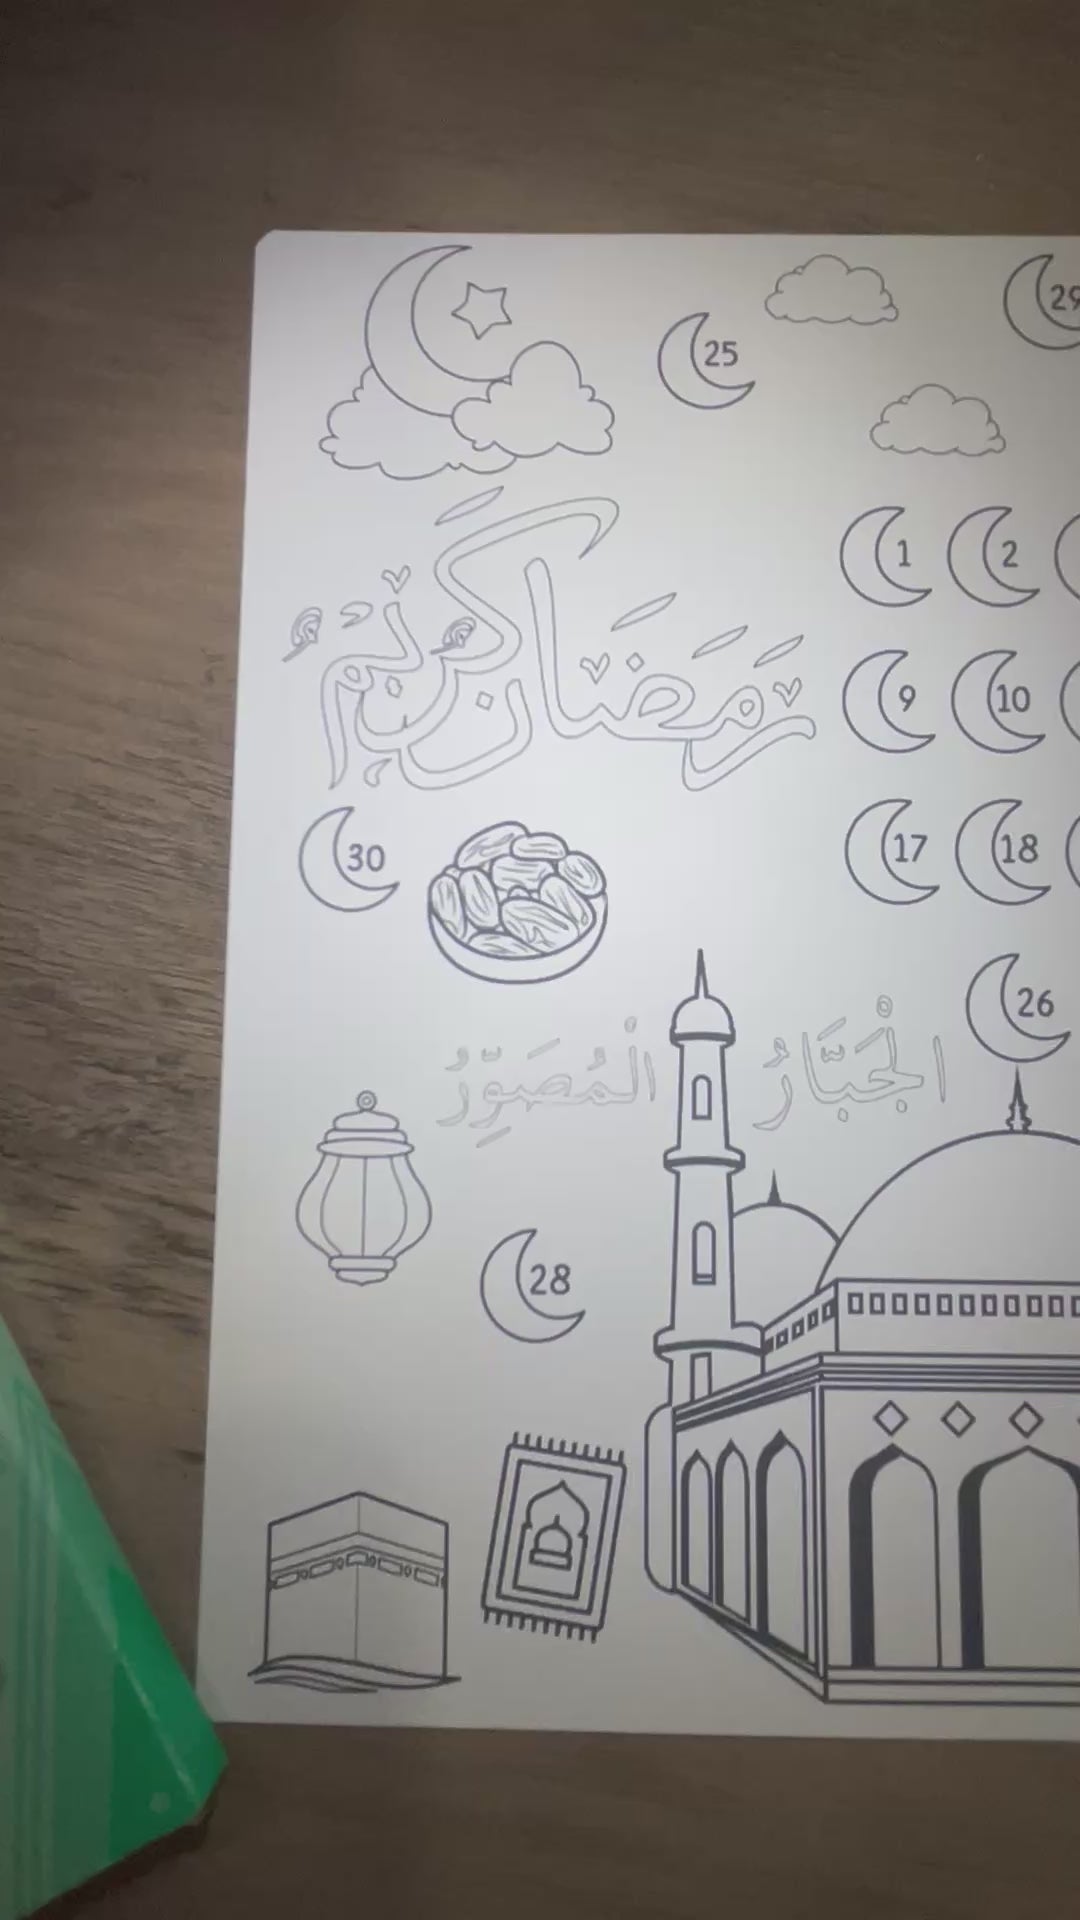 25
29
رَمَضَان كَرِيمٌ
1 2
9 10
17 18
30
26
الْجَبَّارُ
الْمُصَوِّرُ
28